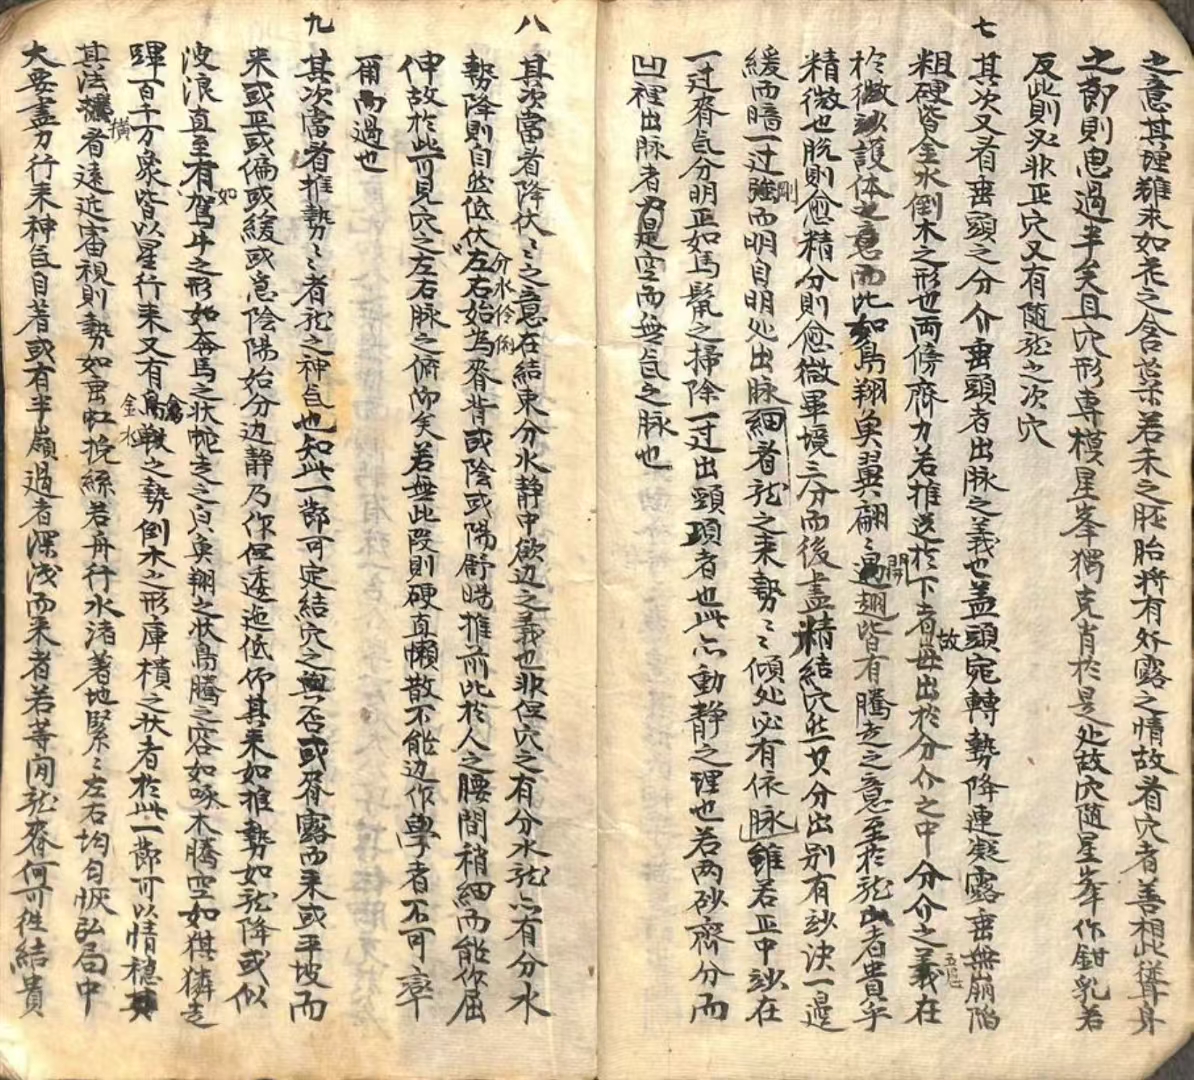 之意其理雖求如花之含蕊若未之胚胎將有外露之情故看穴者善相此從身
之節則思過半矣且穴形專模星峯獨克肖於是处故穴隨星峯作鉗乳若
反此則必非正穴又有隨龍之次穴
七
其次又看垂頭之分介垂頭者出脉之義也蓋頭宛轉勢降連凝露垂無崩陷
粗硬皆金水倒木之形也兩傍齊力若推送於下者故毋出於分介之中分介之義在
於微砂護体之意而此如鳥翔魚翼翩〻開翅皆有騰走之意至於龍者貴乎
精微也脱則愈精分則愈微畢境三分而後盡精結穴然其分出别有妙决一邊
緩而暗一过強剛而明自明处出脉細者龍之来勢〻傾处必有依脉雖若正中妙在
一过脊气分明正如馬鬣之掃除一过出頸項者也此亦動静之理也若两砂齊分而
凹裡出脉者是空而無气之脉也
八
其次當看降伏〻之意在結束分水静中歛边之義也非但穴之有分水龍亦有分水
勢降則自然低伏左右始為脊背或陰或陽舒暢推前此於人之腰間稍細而能作屈
分水伶俐
伸故於此而見穴之左右脉之俯仰矣若無此段則硬直懶散不能边作學者不可率
爾而過也
九
其次當看推勢〻者龍之神气也知此一節可定結穴之與否或脊露而来或平坡而
来或正或偏或緩或急陰陽始分边静乃作但逶迤低作其来如推勢如龍降或似
波浪直至有如駕牛之形如奔馬之状蛇走之自魚翔之状鳥騰之容如啄木騰空如猉獜走
蹕百千万象皆以星行来又有禽鳥戰之勢倒木之形庫樻之状者於此一節可以情穩
金水
其法橫看遠近宙視則勢如垂虹挽絲若舟行水渚著地緊〻左右均匀恢弘局中
大要盡力行来神气自著或有半嶺過者深浅而来者若等闲龍脊何可作結貴